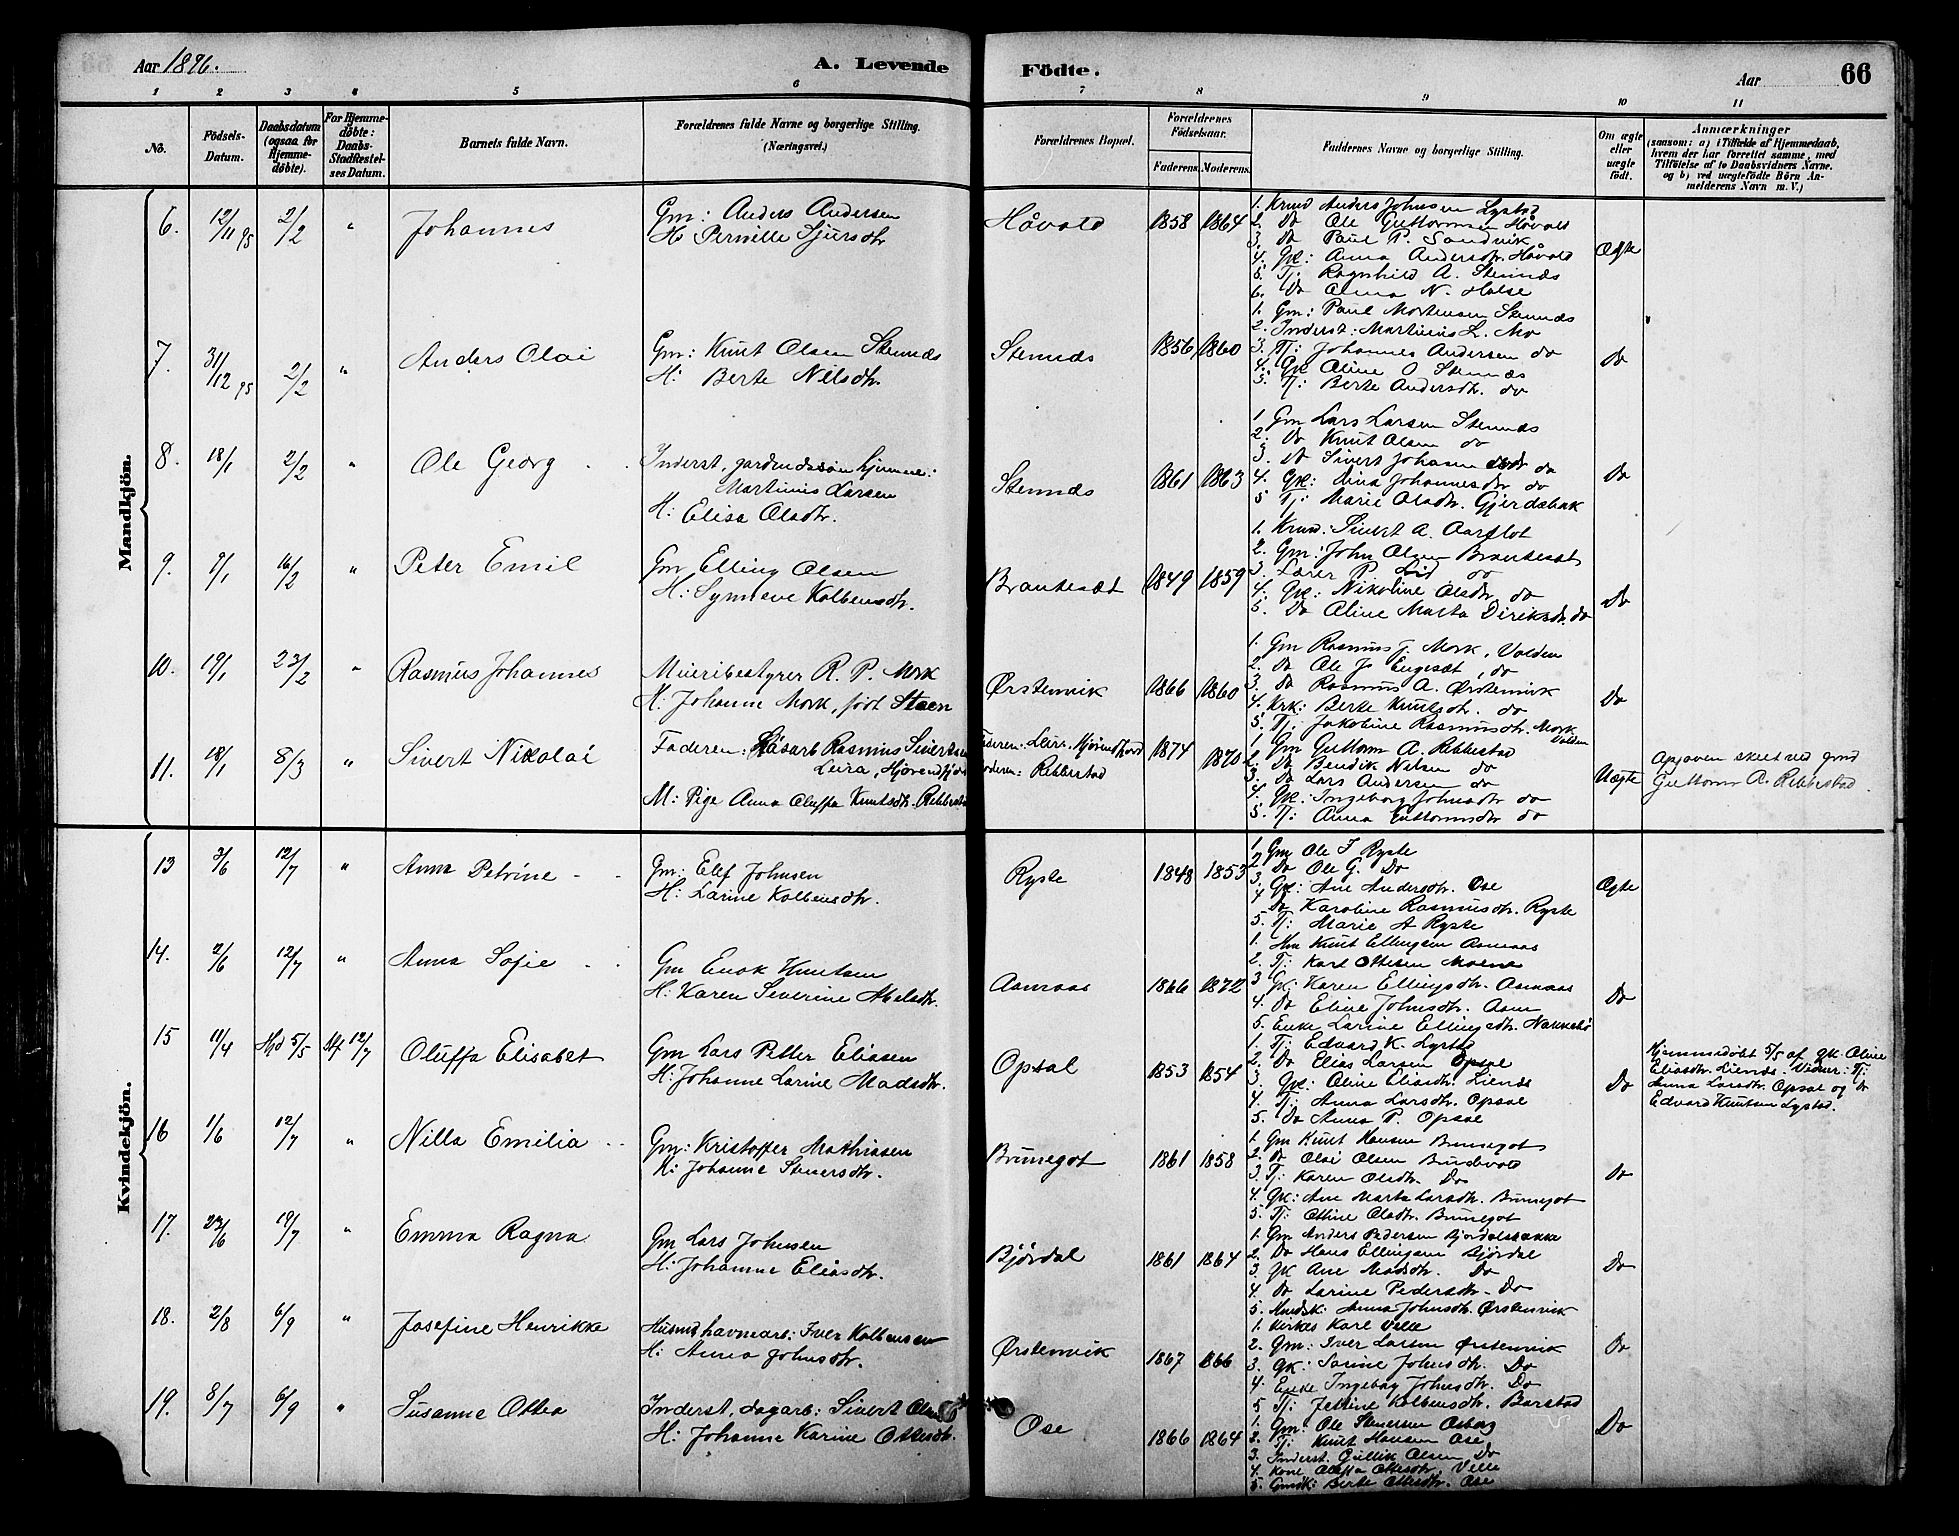 Aar 1896.
A. Levende Födte.
Aar
66
1 2 3 4 5 6 7 8 9 10 11
No.
Födsels-Datum.
Daabsdatum (ogsaa for Hjemme-döbte).
For Hjemme-döbte: Daabs-Stadfæstel-ses Datum.
Barnets fulde Navn.
Forældrenes fulde Navne og borgerlige Stilling. (Næringsvei.)
Forældrenes Bopæl.
Forældrenes Födselsaar.
Faderens. Moderens.
Faddernes Navne og borgerlige Stilling.
Om ægte eller uægte födt.
Anmærkninger
(saasom: a) i Tilfælde af Hjemmedaab, hvem der har forrettet samme, med Tilföielse af to Daabsvidners Navne. og b) ved uægtefödte Börn An-melderens Navn m. V.)
Mandkjön.
6. 12/11 95 2/2 " Johannes
Gm: Anders Andersen
H: Pernille Sjursdtr
Håvold 1858 1864
1. Krmd Anders Johnsen Lystad
2. Do Ole Guttormsen Håvold
3. Do Paul P. Sandvik
4. Gk: Anna Andersdtr. Håvold
5. Tj: Ragnhild A. Stennes
6. Do Anna N. Halse
Ægte
7. 31/12 95 2/2 " Anders Olai
Gm: Knut Olsen Stennæs
H: Berte Nilsdtr.
Stennæs 1856 1860
1. Gm: Paul Mortensen Stennæs
2. Inderst: Martinus L. Mo
3. Tj: Johannes Andersen do
4. Gk Oline O Stennæs
5. Tj: Berte Andersdtr. do
Do
8. 18/1 2/2 " Ole Georg
Inderst, gardmdssøn hjemme:
Martinus Larsen
H: Elisa Olsdtr.
Stennæs 1861 1863
1 Gm Lars Larsen Stennæs
2. Do Knut Olsen do
3. Do Sivert Johansen do
4. Gk: Nina Johannesdtr do
5 Tj: Marie Olsdtr. Gjerdsbak
Do
9. 9/1 16/2 " Peter Emil
Gm Elling Olsen
H: Synneve Kolbensdtr.
Brautesæt 1849 1859
1. Krmd: Sivert A. Aarflot
2. Gm: John Olsen Brautesæt
3. Lærer P Lid do
4. Gk: Nikoline Olsdtr do
5. Do Oline Marta Diriksdtr. do
Do
10. 19/1 23/2 " Rasmus Johannes
Mieribestyrer R. P. Mork
H. Johanne Mork, født Staen
Ørstenvik 1866 1860
1. Gm Rasmus J. Mork, Volden
2. Do Ole J. Engesæt, do
3. Do Rasmus A. Ørstenvik
4. Krk: Berte Knutsdtr. do
5. Tj: Jakobine Rasmusdtr. Mork Volden
Do
11. 18/1 8/3 " Sivert Nikolai
Faderen: Løsarb Rasmus Sivertsen
Leira, Hjørendfjord
M: Pige Anna Oluffa Knutsdtr. Rebbestad
Faderen: Leira Hjørendfjord
Moderen: Rebbestad
1874 1870
1 Gm Guttorm A. Rebbestad
2 Do Bendik Nilsen do
3. Do Lars Andersen do
4. Gk: Ingeborg Johnsdtr do
5. Tj: Anna Guttormsdtr do
Uægte
Opgaven skeet ved gmd
Guttorm A. Rebbestad.
Kvindekjön.
13 3/6 12/7 " Anna Petrine
Gm: Elef Johnsen
H: Larine Kolbensdtr.
Ryste 1848 1853
1, Gm Ole J Ryste
2 Do Ole G. Do
3 Gk: Ane Andersdtr. Ose
4 Do Karoline Rasmusdtr. Ryste
5. Tj: Marie A Ryste
Ægte
14. 2/6 12/7 " Anna Sofie
Gm Enok Knutsen
H: Karen Severine Abelsdtr.
Aamaas 1866 1872
1. Hm Knut Ellingsen Aamaas
2. Tj: Karl Ottesen Moene
3 Gk: Karen Ellingsdtr. Aamaas
4. Do Eline Johnsdtr. Aam
5. Enke Larine Ellingsdtr.
Do
15 11/4 Hjd 5/5 Stf 12/7 Oluffa Elisabet
Gm Lars Petter Eliasen
H: Johanne Larine Madsdtr.
Opsal 1853 1854
1. Tj: Edvard K. Lystad
2. Do Elias Larsen Opsal
3. Gk: Oline Eliasdtr. Liends
4. Tj: Anna Larsdtr. Opsal
5. Do Anna P. Opsal
Do
Hjemmedøbt 5/5 af gk Oline
Eliasdtr. Liends. Vidner: Tj:
Anna Larsdtr. Opsal og Do
Edvard Knutsen Lystad.
16 1/6 12/7 " Nilla Emilia
Gm: Kristoffer Mathiasen
H: Johanne Stenersdtr.
Brunegot 1861 1858
1. Gm Knut Hansen Brunegot
2. Do Olai Olsen
3 Tj: Karen Olsdtr. Do
4. Gk: Ane Marta Larsdtr. Brunegot
5. Tj: Ottine Olsdtr. Brunegot
Do
17. 23/6 19/7 " Emma Ragna
Gm Lars Johnsen
H: Johanne Eliasdtr.
Bjørdal 1861 1864
1. Gm Anders Pedersen Bjørdalsbakke
2. Do Hans Ellingsen Bjørdal
3 Gk Ane Madsdtr. Do
4. Do Larine Pedersdtr. Do
5. Hmdsk: Anna Johnsdtr. Ørstenvik
Do
18. 2/8 6/9 " Josefine Henrikke
Husmd havnearb: Iver Kolbensen
H: Anna Johnsdtr.
Ørstenvik 1867 1866
1. Kirkes Karl Velle
2. Gm: Iver Larsen Ørstenvik
3. Gk: Sarine Johnsdtr. Do
4. Enke Ingeborg Johnsdtr. Do
5 Tj: Jettine Kolbensdtr. Barstad
Do
19. 8/7 6/9 " Susanne Ottea
Inderst, dagarb: Sivert
H: Johanne Karine Ottesdtr.
Ose 1866 1864
1. Gm: Ole Stenersen Osborg
2. Tj: Knut Hansen Ose
3. Inderst. Gullik Olsen Do
4. Kone Oluffa Ottesdtr. Velle
5. Gmdk: Berte Ottesdtr. Ose
Do